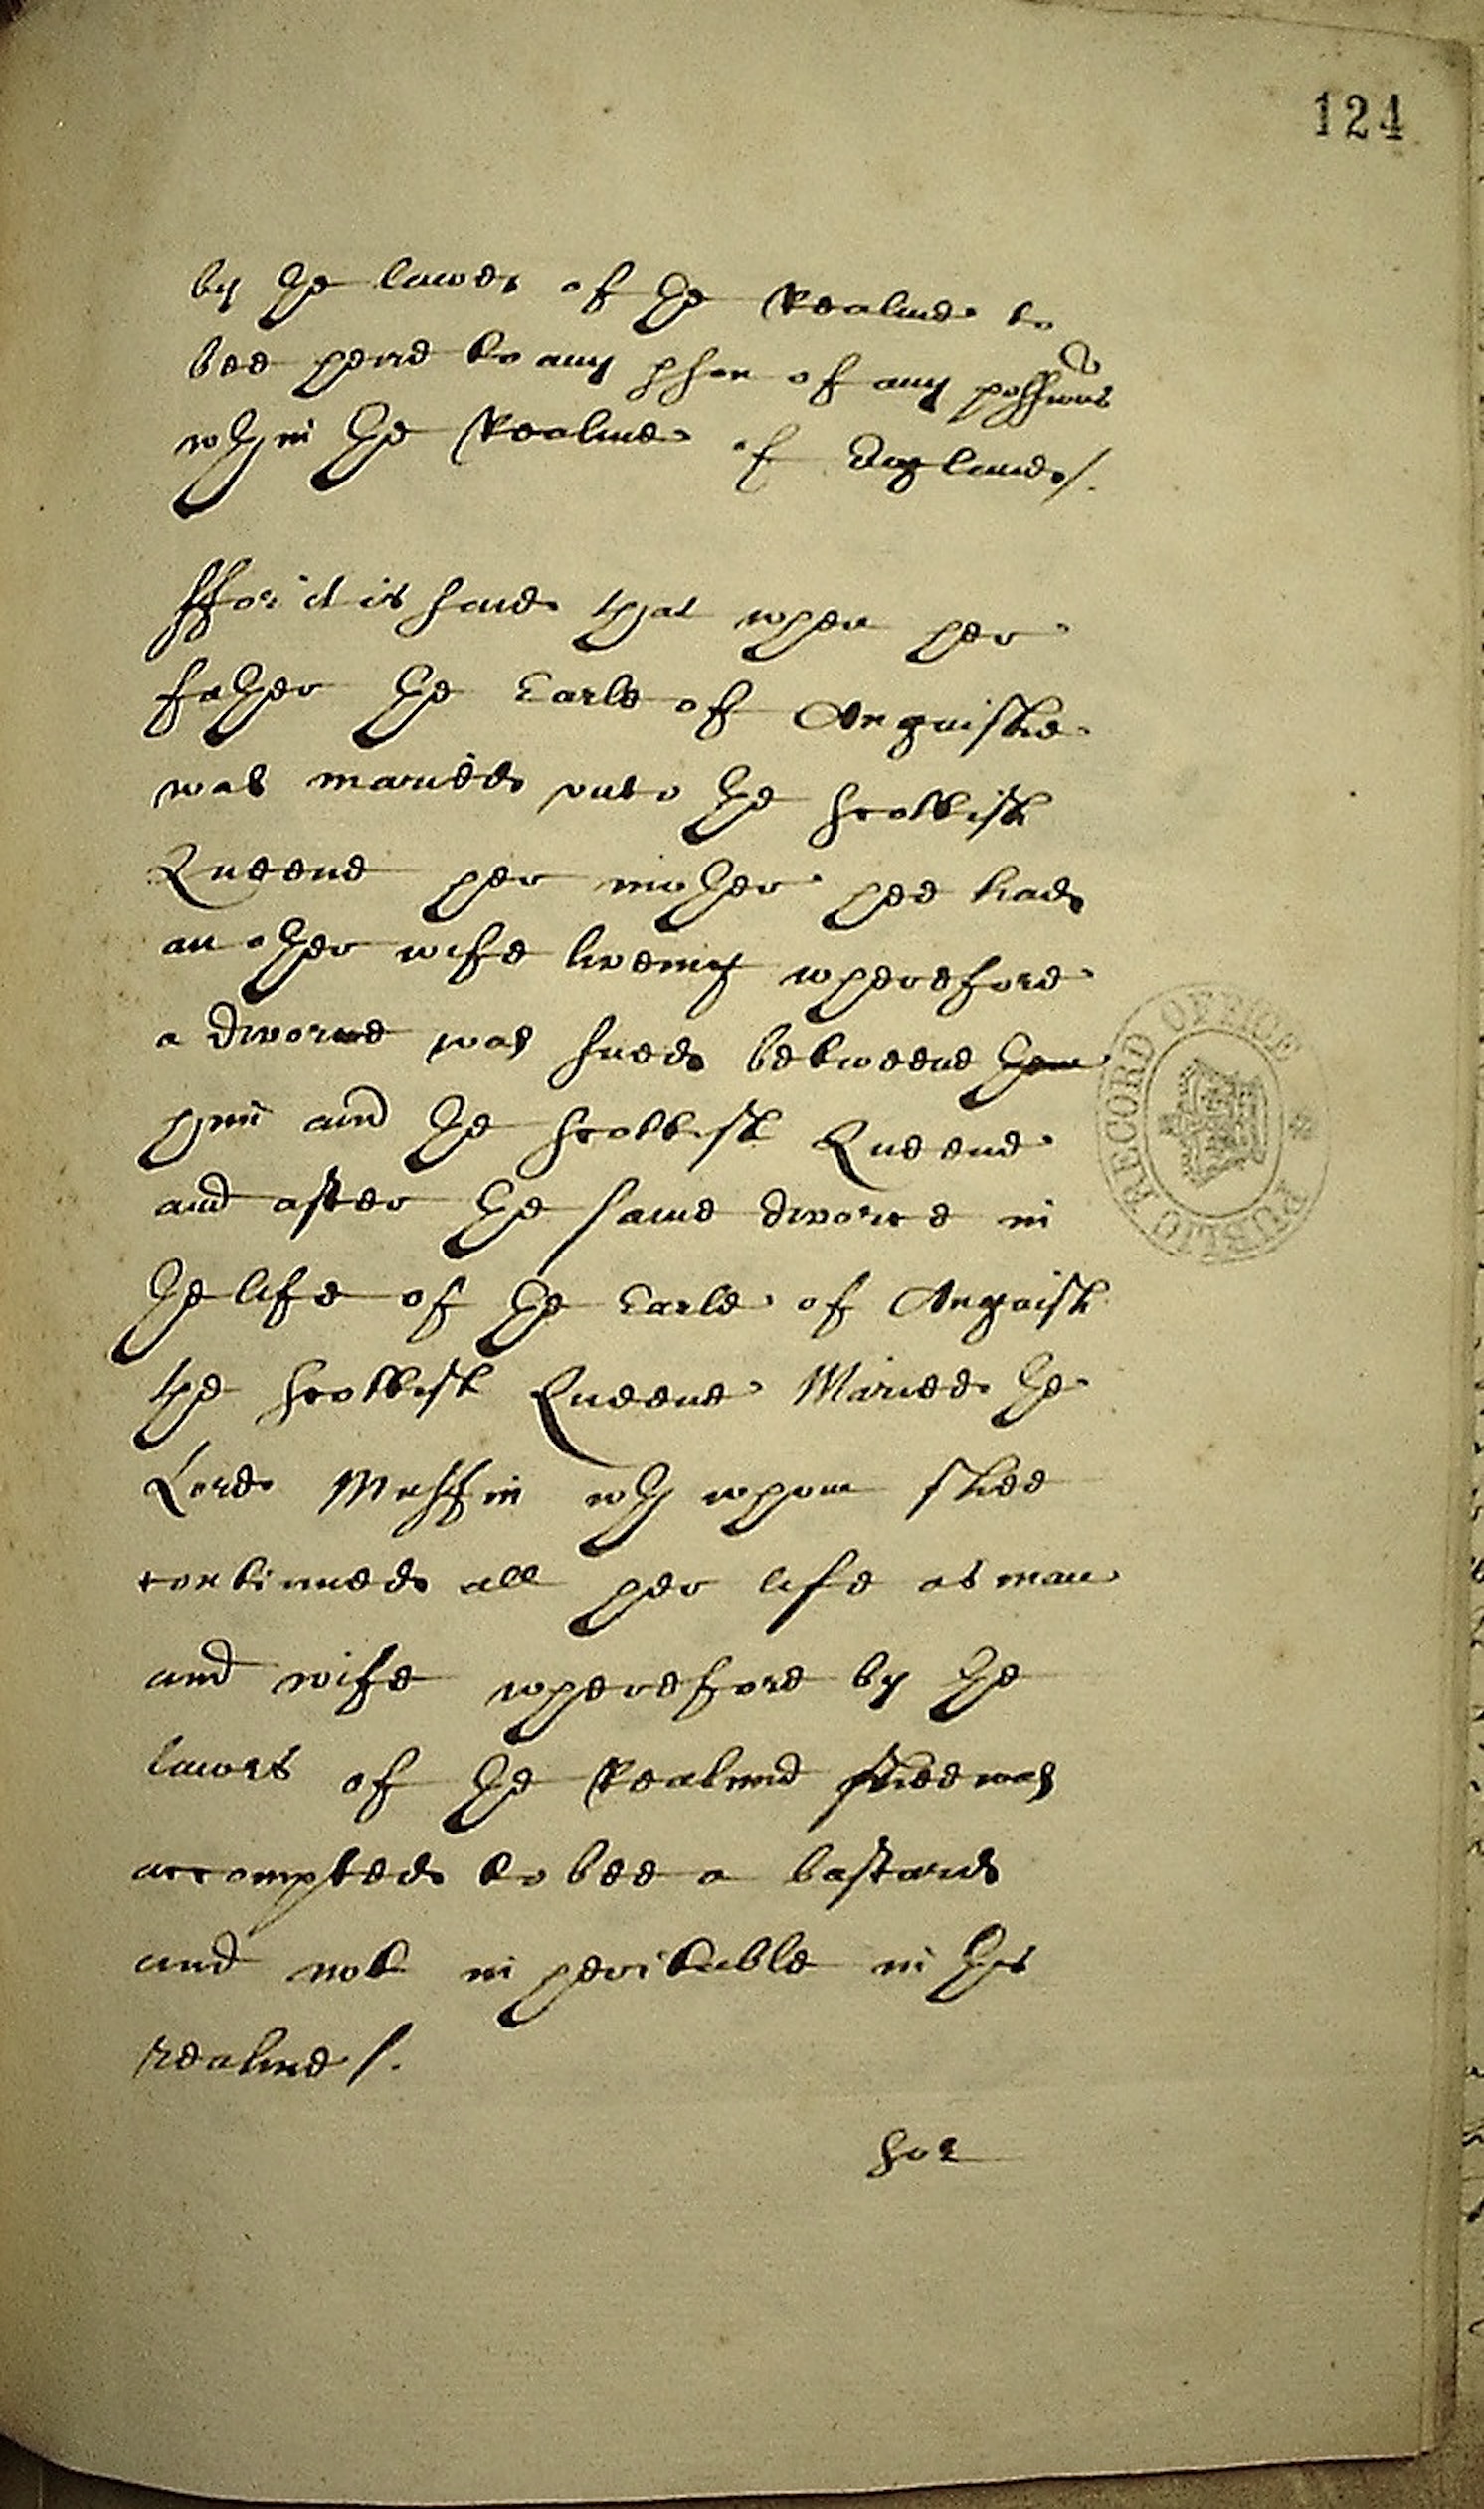 124
by the lawes of the Realme to
bee heire to any pson of any possions
wthin the Realme of England /.
ffor it is said that when her
father the Earle of Anguishe
was maried unto the Scottish
Queene her mother hee had
an other wife liveing wherefore
a divorce was sued betweene them
him and the Scottish Queene
and after the same divorce in
the life of the Earle of Anguish
the Scottish Queene Maried the
Lord Muffin wth whom shee
continued all her life as man
and wife wherefore by the
lawes of the Realme shee was
accompted to bee a bastard
and not inheritable in this
realme /.
for
PUBLIC RECORD OFFICE